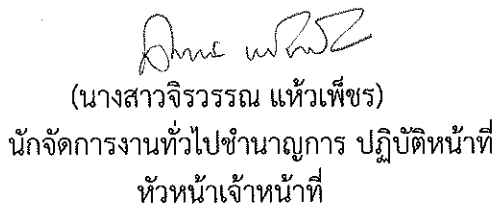 (นางสาวจิรวรรณ แห้วเพ็ชร)
นักจัดการงานทั่วไปชำนาญการ ปฏิบัติหน้าที่
หัวหน้าเจ้าหน้าที่